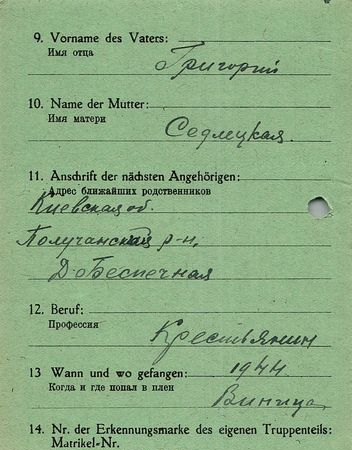 9. Vorname des Vaters:
Имя отца
Григорий
10. Name der Mutter:
Имя матери
Седлецкая.
11. Anschrift der nächsten Angehörigen:
Адрес ближайших родственников
Киевская об.
р-н,
Д-Беспечная
12. Beruf:
Профессия
Крестьянин
13 Wann und wo gefangen: 1944
Когда и где попал в плен
Виница
14. Nr. der Erkennungsmarke des eigenen Truppenteils:
Matrikel-Nr.